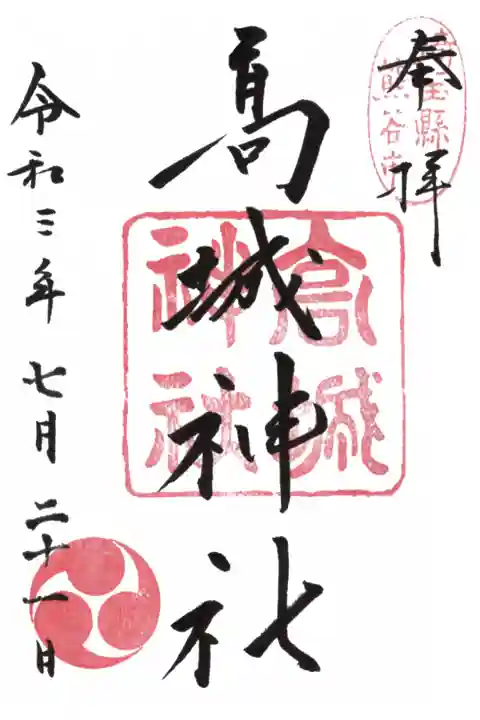 奉拝
埼玉縣
熊谷市
高城神社
高城
神社
令和三年七月二十一日